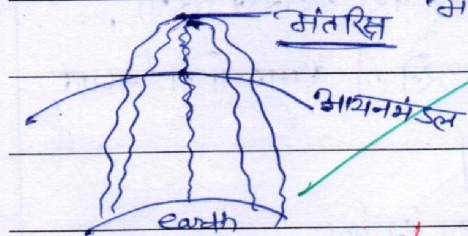 अंतरिक्ष
आयनमंडल
earth